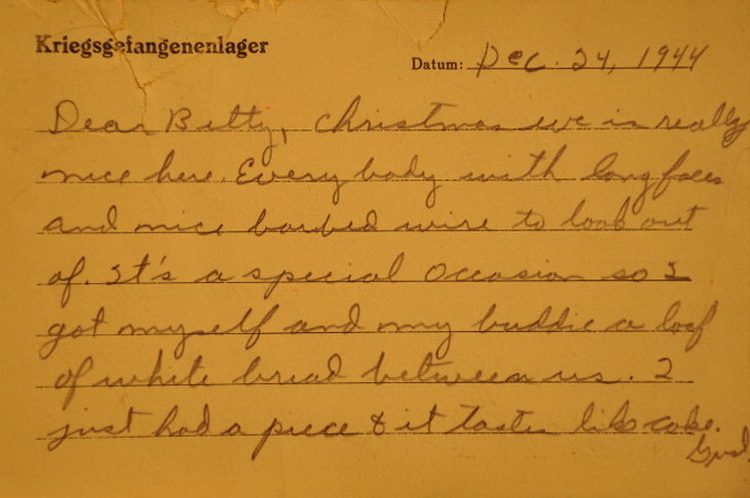 Kriegsgefangenenlager
Datum: Dec. 24, 1944
Dear Betty, Christmas eve is really
nice here. Everybody with long faces
and nice barbed wire to look out
of. It's a special occasion so I
got myself and my buddie a loaf
of white bread between us. I
just had a piece & it tastes like cake.